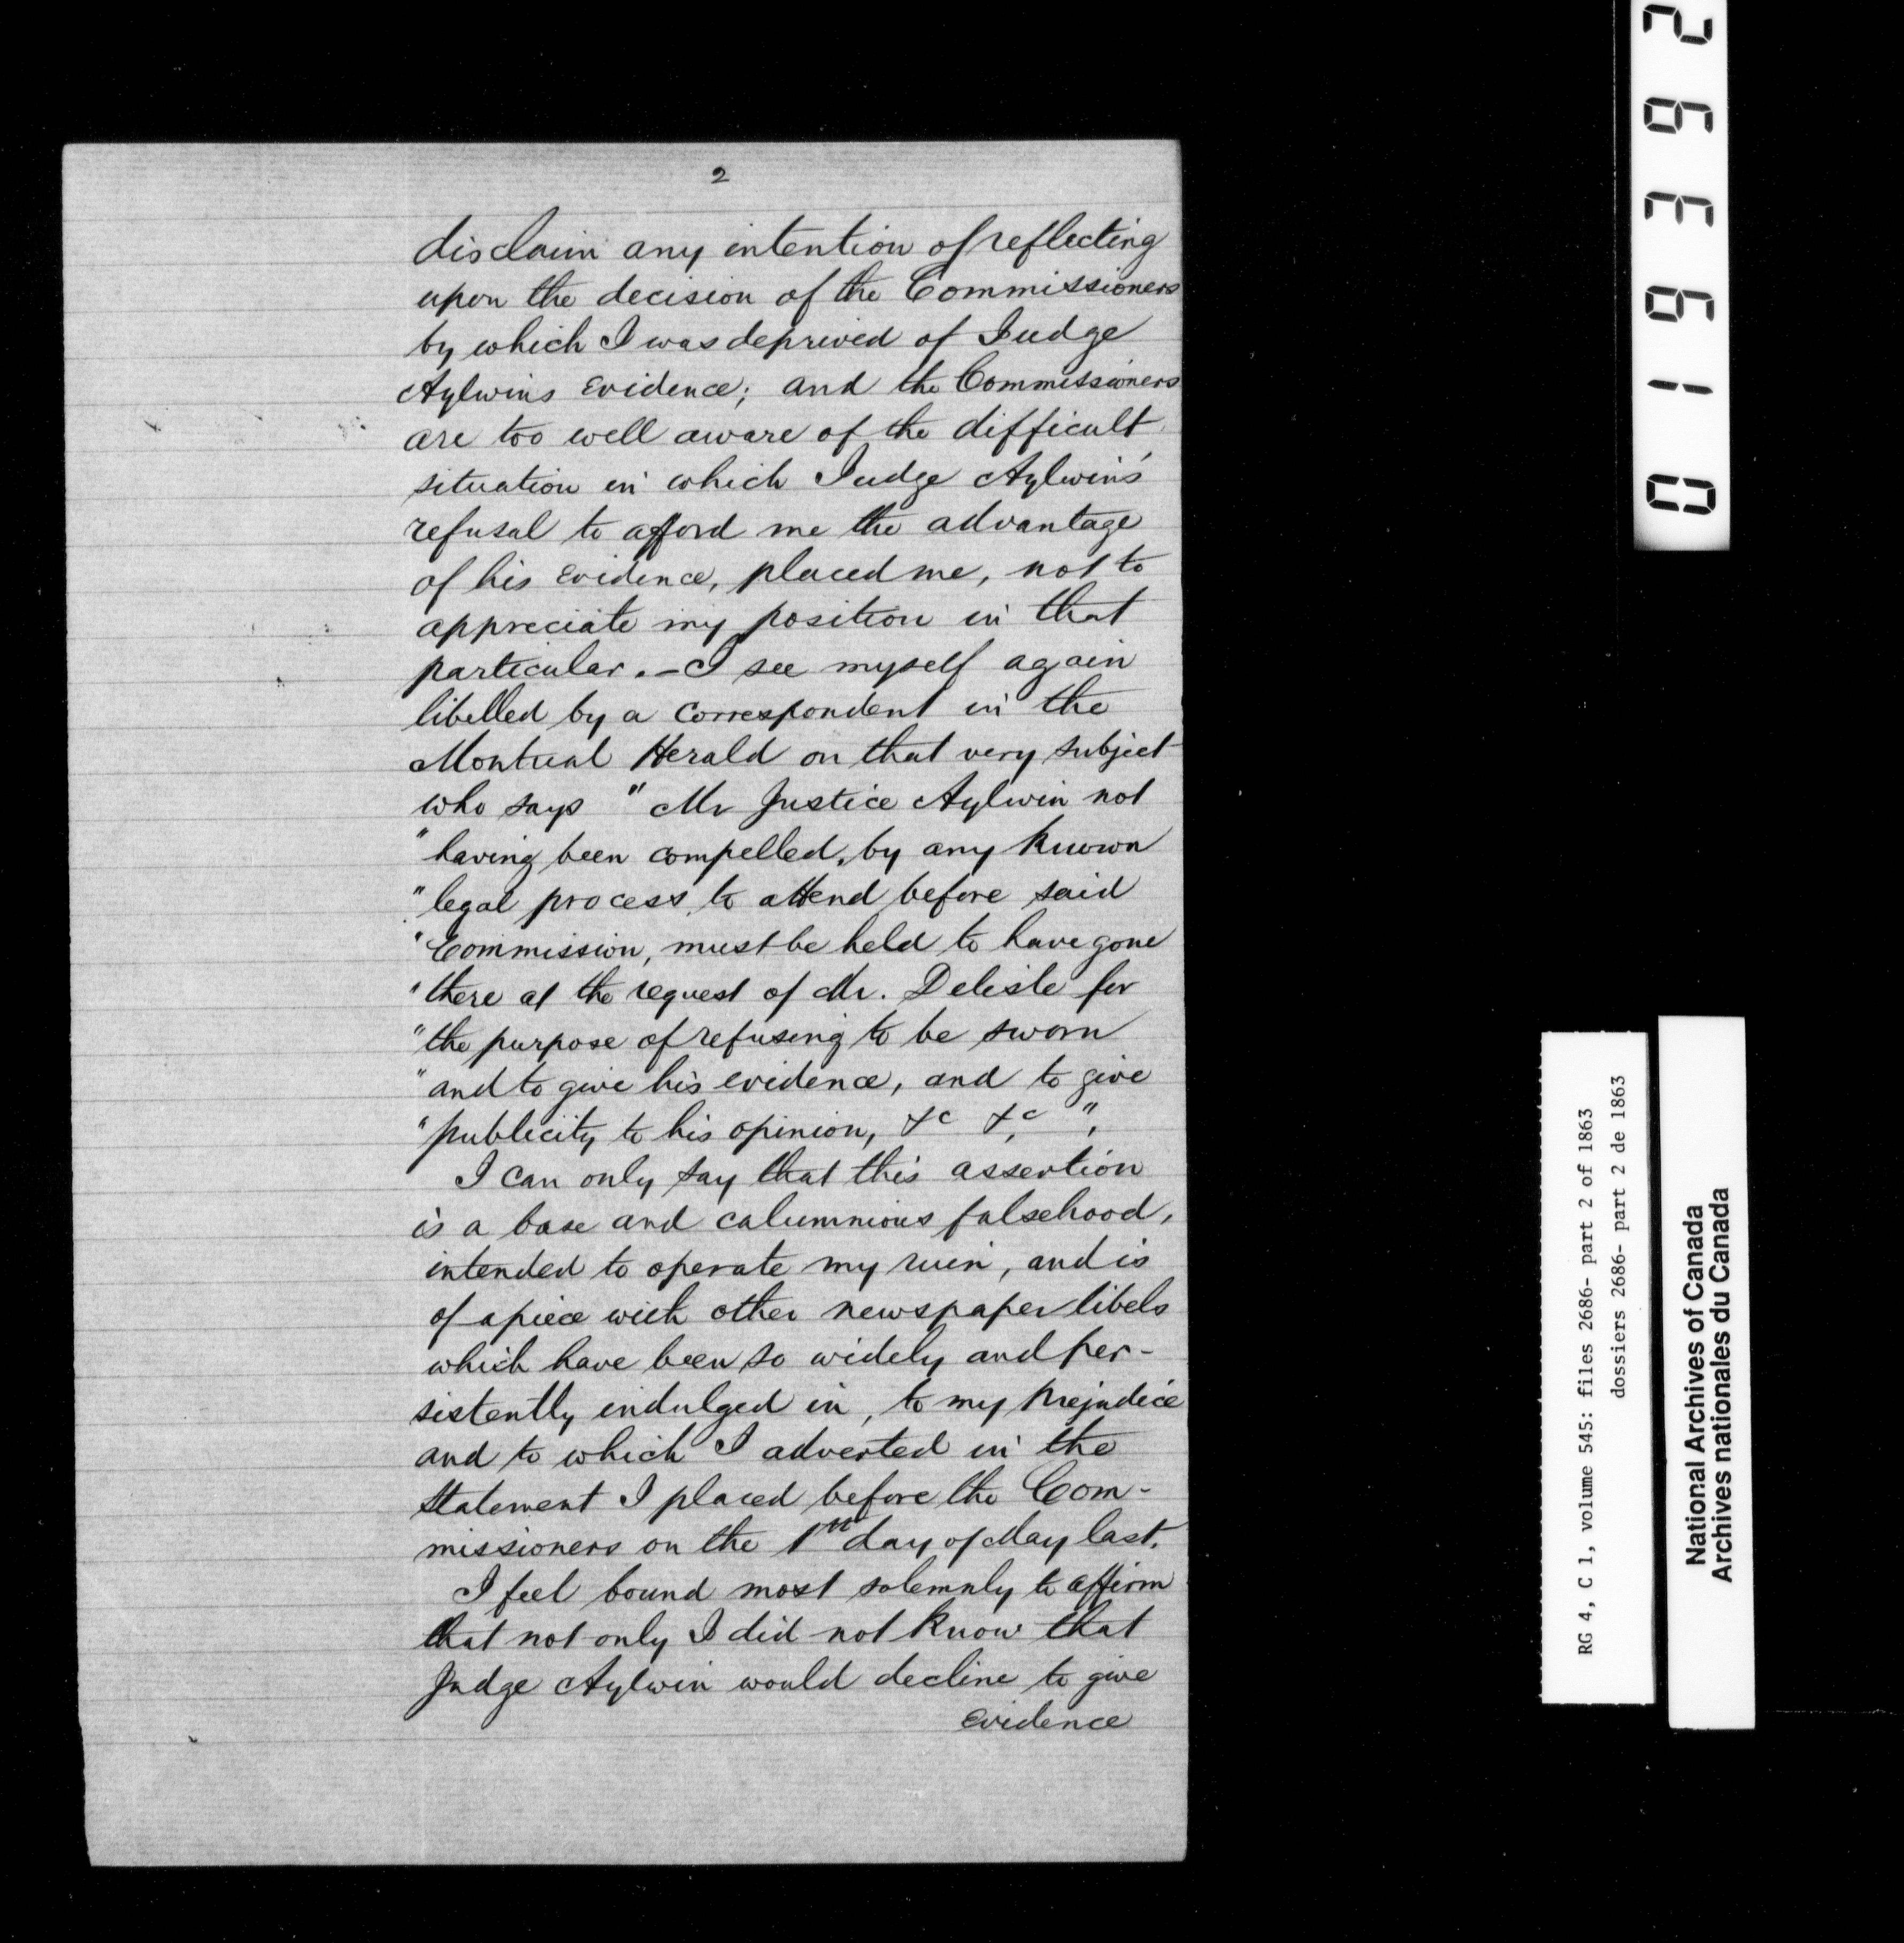 2
disclaim any intention of reflecting
upon the decision of the Commissioners
by which I was deprived of Judge
Aylwins Evidence; and the Commissioners
are too well aware of the difficult
situation in which Judge Aylwin's
refusal to afford me the advantage
of his Evidence, placed me, not to
appreciate my position in that
particular. – I see myself again
libelled by a correspondent in the
Montreal Herald on that very subject
who says " Mr Justice Aylwin not
" having been compelled, by any known
" legal process, to attend before said
" Commission, must be held to have gone
" there at the request of Mr. Delisle for
" the purpose of refusing to be sworn
" and to give his evidence, and to give
" publicity to his opinion, &c &c ",
I can only say that this assertion
is a base and calumnious falsehood,
intended to operate my ruin, and is
of a piece with other newspaper libels
which have been so widely and per-
sistently indulged in, to my prejudice
and to which I adverted in the
Statement I placed before the Com-
missioners on the 1st day of May last.
I feel bound most solemnly to affirm
that not only I did not know that
Judge Aylwin would decline to give
Evidence
019639 2
RG 4, C 1, volume 545: files 2686- part 2 of 1863
dossiers 2686- part 2 de 1863
National Archives of Canada
Archives nationales du Canada